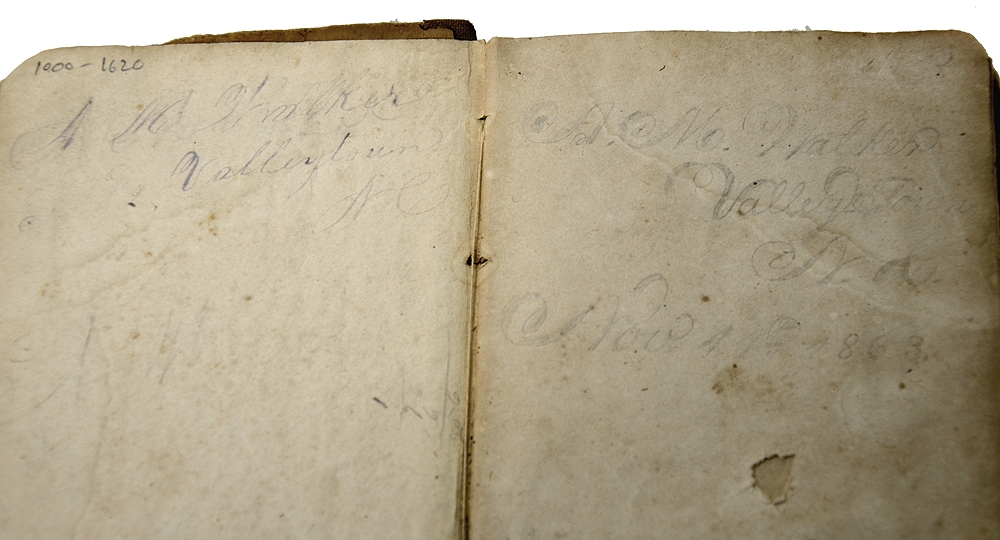 1000-1620
A M Walker
Valleytown
N C
A. M. Walker
Valleytown
N. C.
Nov 11th 1863